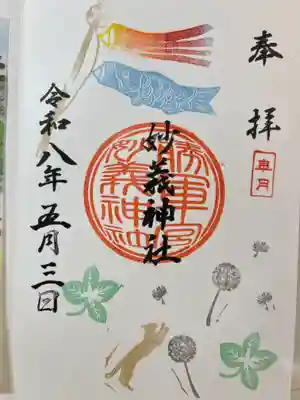 奉拝
皐月
妙義神社
令和八年五月三日